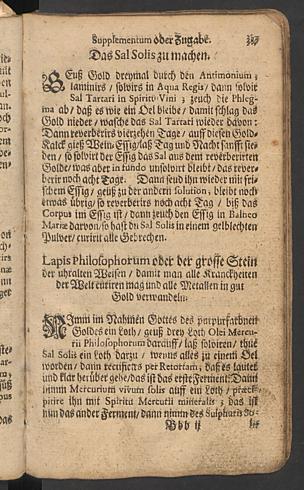 Supplementum oder Zugabe.
Das Sal Solis zu machen.
Geuß Gold dreymal durch den Antimonium,
laminirs / solvirs in Aqua Regis / dann solvir
Sal Tartari in Spiritu Vini; zeuch die Phleg-
ma ab / daß es wie ein Oel bleibe / damit schlag das
Gold nieder / wasche das Sal Tartari wieder davon:
Dann reverberirs vierzehen Tage / auff diesen Gold-
Kalck gieß Wein-Essig / laß Tag und Nacht sanfft sie-
den / so solvirt der Essig das Sal aus dem reverberirten
Golde / was aber in fundo unsolvirt bleibt / das rever-
berir noch acht Tage. Dann seud ihn wieder mit fri-
schem Essig / geuß zu der andern solution, bleibt noch
etwas übrig / so reverberirs noch acht Tag / biß das
Corpus im Essig ist / dann zeuch den Essig in Balneo
Mariæ darvon / so hast du Sal Solis in einem gelblechten
Pulver / curirt alle Gebrechen.
Lapis Philosophorum oder der grosse Stein
der uhralten Weisen / damit man alle Kranckheiten
der Welt curiren mag und alle Metallen in gut
Gold verwandeln.
Nimm im Nahmen Gottes des purpurfarbnen
Goldes ein Loth / geuß drey Loth Olei Mercu-
rii Philosophorum darauff / laß solviren / thue
Sal Solis ein Loth darzu / wenns alles zu einem Oel
worden / dann rectificirs per Retortam; daß es lauter
und klar herüber gehe / das ist das erste Ferment: Dann
nimm Mercurium vivum solis auff ein Loth / præci-
pitire ihn mit Spiritu Mercurii mineralis; das ist
nun das ander Ferment / dann nimm des Sulphuris So-
Bbb ij